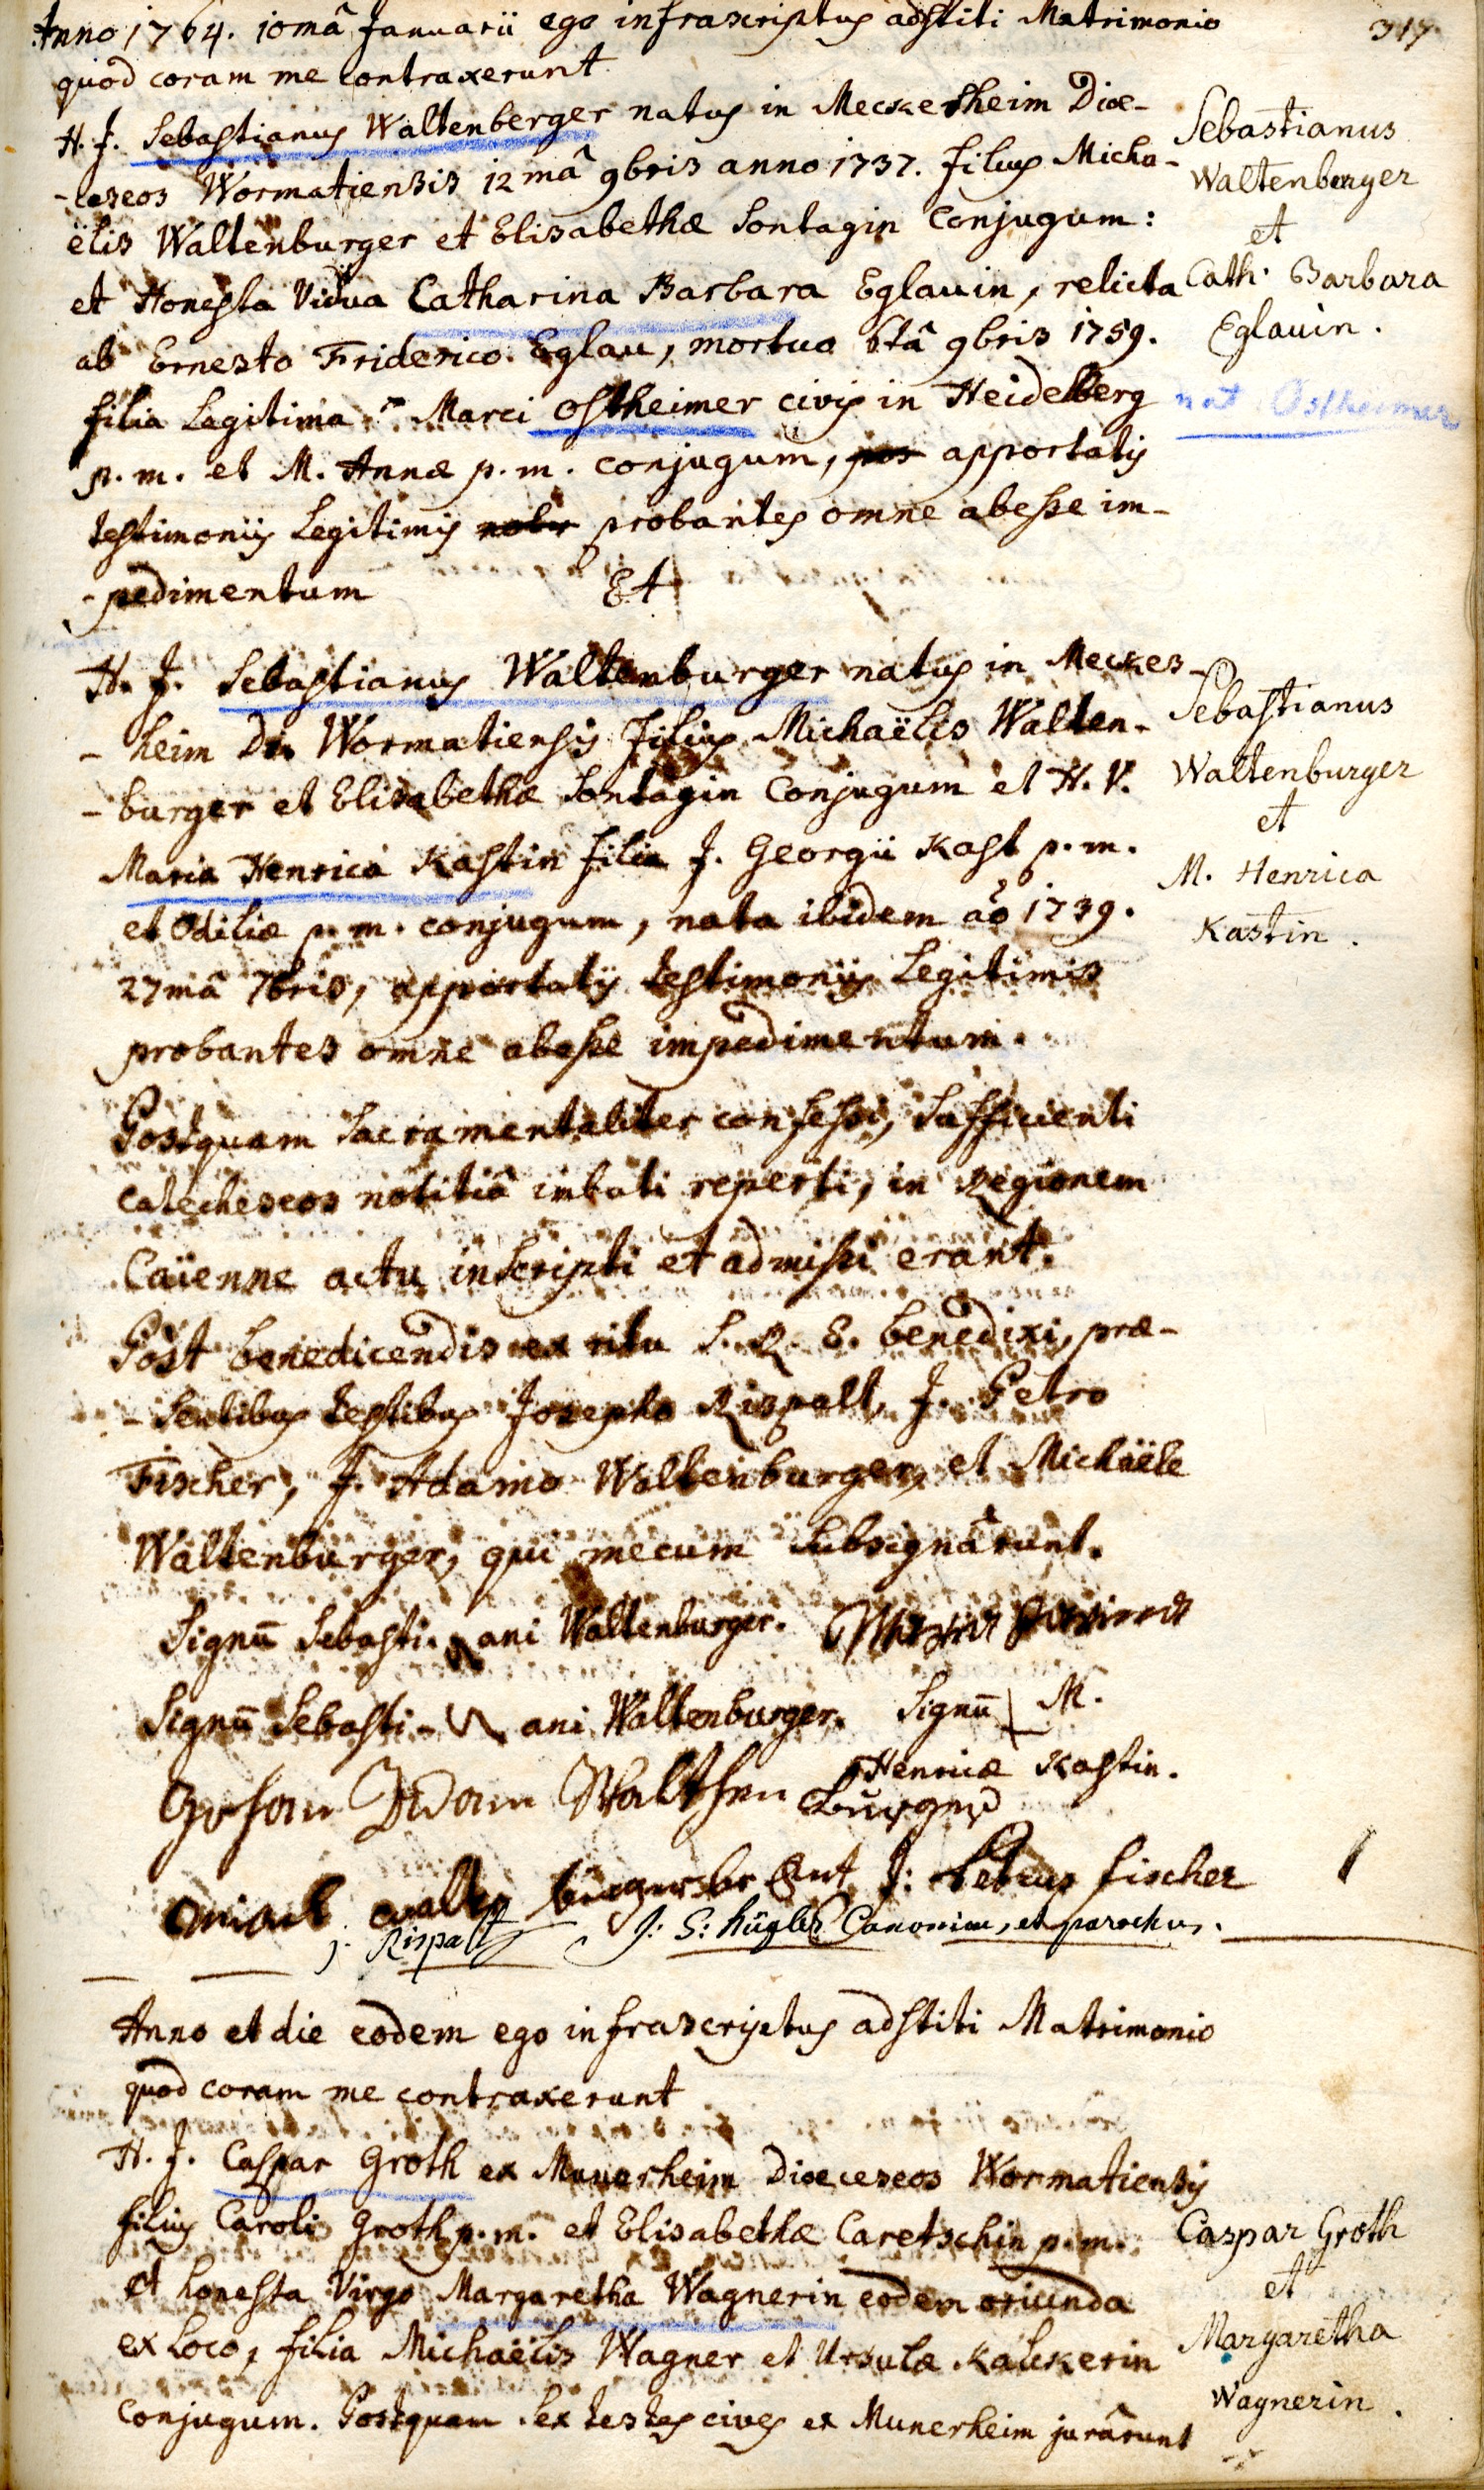 317
Anno 1764. 10mâ Januarii ego infrascriptus adstiti Matrimonio
quod coram me contraxerunt
H. J. Sebastianus Waltenberger natus in Meckesheim Dioe-
-ceseos Wormatiensis 12mâ 9bris anno 1737. filius Micha-
ëlis Waltenburger et Elisabethæ Sontagin Conjugum:
et Honesta Vidua Catharina Barbara Eglauin, relicta
ab Ernesto Friderico Eglau, mortuo 6tâ 9bris 1759.
filia Legitima Marci Ostheimer civis in Heidelberg
p. m. et M. Annæ p. m. conjugum, pos apportatis
testimoniis Legitimis probantes omne abesse im-
-pedimentum Et
Sebastianus
Waltenberger
et
Cath. Barbara
Eglauin.
nat Ostheimer
H. J. Sebastianus Waltenburger natus in Meckes-
-heim Di: Wormatiensis filius Michaëlis Walten-
-burger et Elisabethæ Sontagin Conjugum et H. V.
Maria Henrica Kastin filia J. Georgii Kast p. m.
et Odiliæ p. m. conjugum, nata ibidem aõ 1739.
27mâ 7bris, apportatis testimoniis Legitimis
probantes omne abesse impedimentum.
Sebastianus
Waltenburger
et
M. Henrica
Kastin.
Postquam Sacramentaliter confessi, Sufficienti
catecheseos notitiâ imbuti reperti, in Regionem
Caïenne actu inscripti et admissi erant.
Post benedicendis ex ritu S. R. E. benedixi, præ-
-sentibus testibus Josepho Rispalt, J. Petro
Fischer, J. Adamo Waltenburger, et Michaële
Waltenburger, qui mecum Subsignârunt.
Signū Sebasti- ani Waltenburger.
Signū Sebasti- ani Waltenburger. Signū M.
Henricæ Kastin.
Johann Adam Walthen
burger
J: Petrus fischer
J. Rispalt J: S: Hügler Canonicus, et parochus.
Anno et die eodem ego infrascriptus adstiti Matrimonio
quod coram me contraxerunt
H. J. Caspar Groth ex Munerheim Dioeceseos Wormatiensis
filius Caroli Groth p. m. et Elisabethæ Caretschin p. m.
et honesta Virgo Margaretha Wagnerin eodem oriunda
ex Loco, filia Michaëlis Wagner et Ursulæ Kalckerin
Conjugum. Postquam Sex testes cives ex Munerheim jurârunt
Caspar Groth
et
Margaretha
Wagnerin.